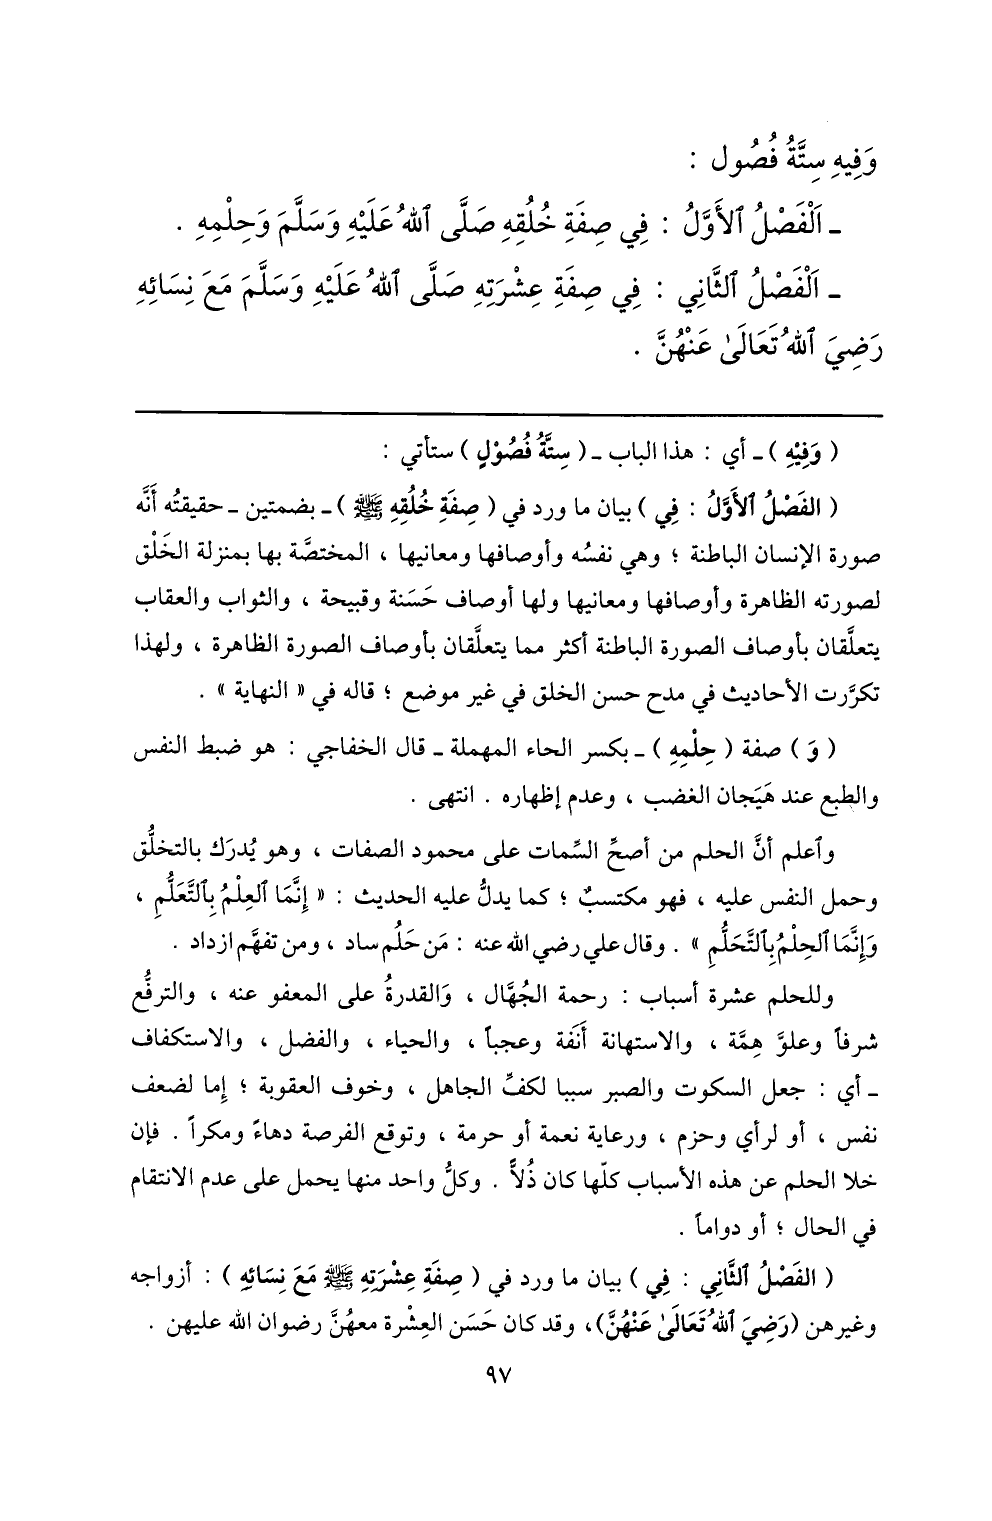 وَفِيهِ سِتَّةُ فُصُول :
ـ اَلْفَصْلُ ٱلأَوَّلُ : فِي صِفَةِ خُلُقِهِ صَلَّى ٱللهُ عَلَيْهِ وَسَلَّمَ وَحِلْمِهِ .
ـ اَلْفَصْلُ ٱلثَّانِي : فِي صِفَةِ عِشْرَتِهِ صَلَّى ٱللهُ عَلَيْهِ وَسَلَّمَ مَعَ نِسَائِهِ
رَضِيَ ٱللهُ تَعَالَىٰ عَنْهُنَّ .
( وَفِيْهِ ) ـ أي : هذا الباب ـ ( سِتَّةُ فُصُوْلٍ ) ستأتي :
( الفَصْلُ ٱلأَوَّلُ : فِي ) بيان ما ورد في ( صِفَةِ خُلُقِهِ ﷺ ) ـ بضمتين ـ حقيقتُه أَنَّه
صورة الإنسان الباطنة ؛ وهي نفسُه وأوصافها ومعانيها ، المختصَّة بها بمنزلة الخَلْق
لصورته الظاهرة وأوصافها ومعانيها ولها أوصاف حَسَنة وقبيحة ، والثواب والعقاب
يتعلَّقان بأوصاف الصورة الباطنة أكثر مما يتعلَّقان بأوصاف الصورة الظاهرة ، ولهذا
تكرَّرت الأحاديث في مدح حسن الخلق في غير موضع ؛ قاله في « النهاية » .
( وَ ) صفة ( حِلْمِهِ ) ـ بكسر الحاء المهملة ـ قال الخفاجي : هو ضبط النفس
والطبع عند هَيَجان الغضب ، وعدم إظهاره . انتهى .
وٱعلم أنَّ الحلم من أصحِّ السِّمات على محمود الصفات ، وهو يُدرَك بالتخلُّق
وحمل النفس عليه ، فهو مكتسبٌ ؛ كما يدلُّ عليه الحديث : « إِنَّمَا ٱلعِلْمُ بِٱلتَّعَلُّمِ ،
وَإِنَّمَا ٱلحِلْمُ بِٱلتَّحَلُّمِ » . وقال علي رضي الله عنه : مَن حَلُم ساد ، ومن تفهَّم ازداد .
وللحلم عشرة أسباب : رحمة الجُهَّال ، وَالقدرةُ على المعفو عنه ، والترفُّع
شرفاً وعلوَّ هِمَّة ، والاستهانة أَنَفَة وعجباً ، والحياء ، والفضل ، والاستكفاف
ـ أي : جعل السكوت والصبر سببا لكفِّ الجاهل ، وخوف العقوبة ؛ إما لضعف
نفس ، أو لرأي وحزم ، ورعاية نعمة أو حرمة ، وتوقع الفرصة دهاءً ومكراً . فإن
خلا الحلم عن هذه الأسباب كلّها كان ذُلاًّ . وكلُّ واحد منها يحمل على عدم الانتقام
في الحال ؛ أو دواماً .
( الفَصْلُ ٱلثَّانِي : فِي ) بيان ما ورد في ( صِفَةِ عِشْرَتِهِ ﷺ مَعَ نِسَائِهِ ) : أزواجه
وغيرهن (رَضِيَ ٱللهُ تَعَالَىٰ عَنْهُنَّ)، وقد كان حَسَن العِشْرة معهُنَّ رضوان الله عليهن .
٩٧